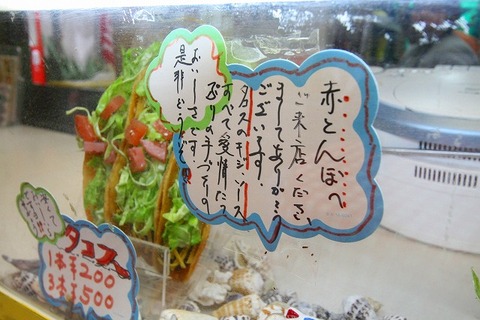 赤とんぼへ
ご来店くださり
ましてありがとう
ございます。
タコスのキジ、ソース
すべて愛情たっ
ぷりの手づくりの
おいしさです
是非どうぞ!!
タコス
1本¥200
3本¥500